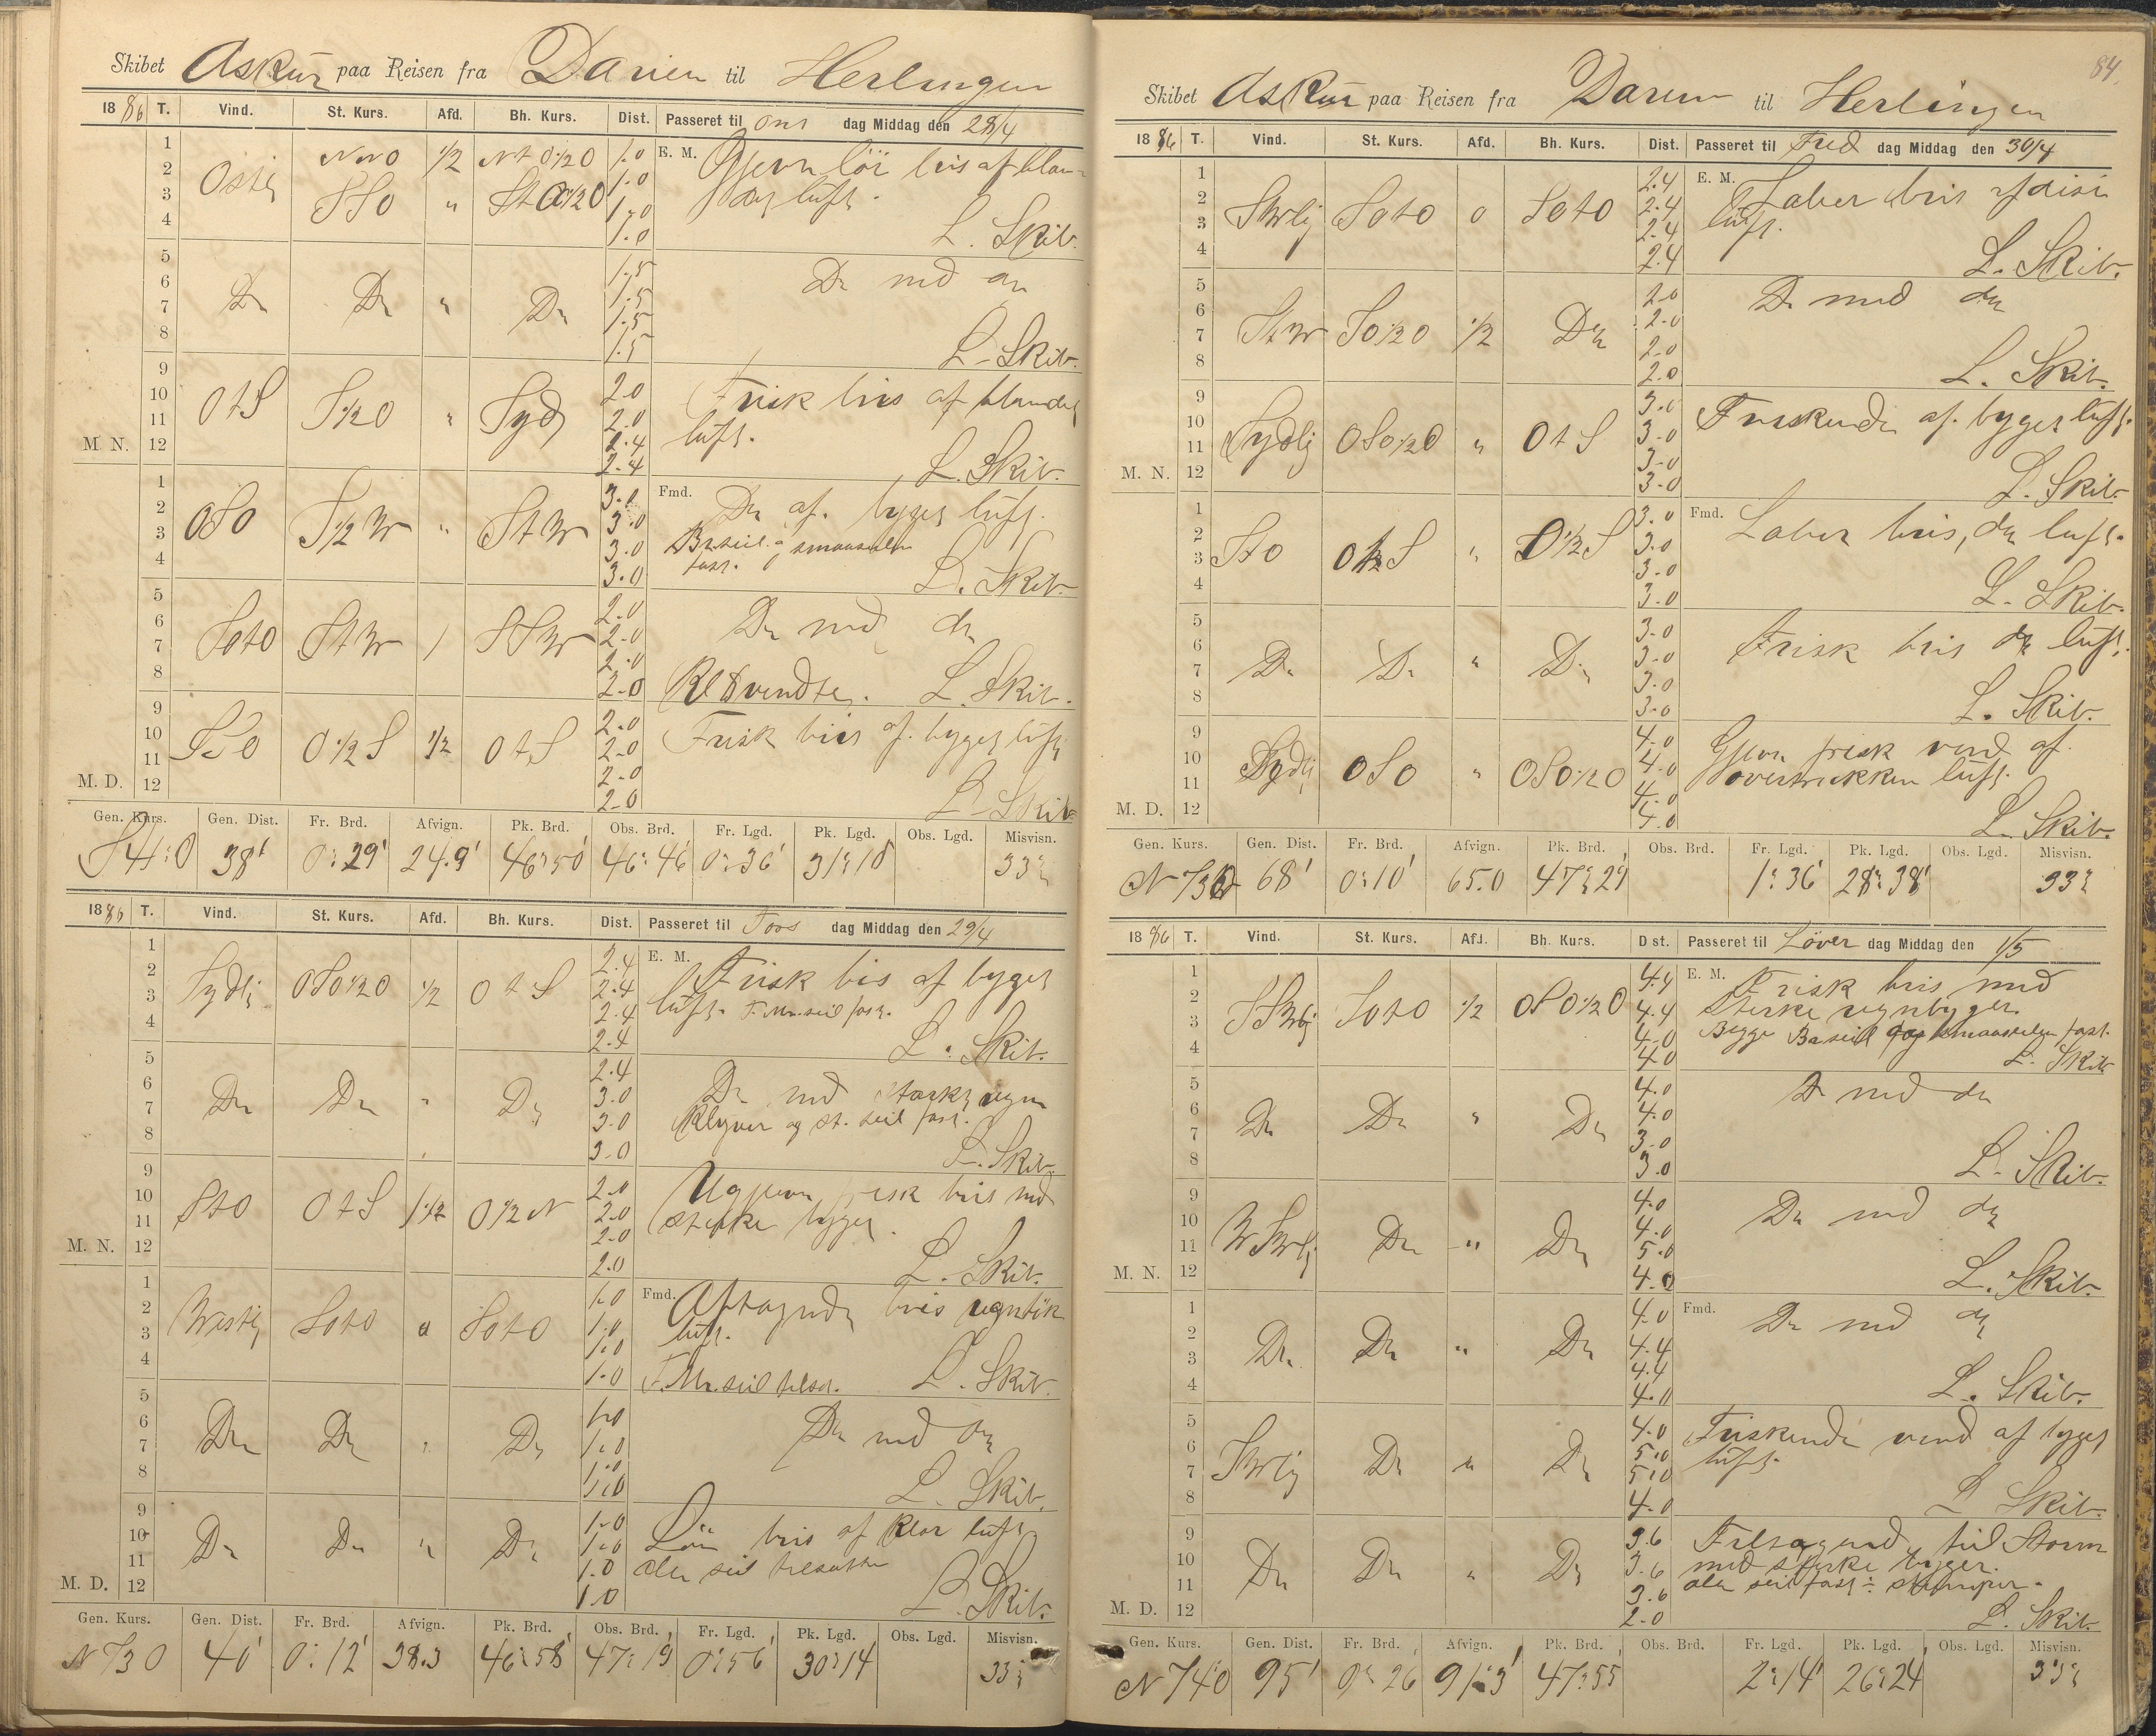 Skibet Askur paa Reisen fra Darien til Herlingen
1886 T. Vind. St. Kurs. Afd. Bh. Kurs. Dist. Passeret til Ons dag Middag den 28/4
1 NNO 1/2 Nt O1/2O 1.0 E. M. Ojevn lör bris af blan-
2 Ostlj 1.0 det luft.
3 SSO " St O1/2O 1.0
4 1.0 L. Skib.
5 1.5 Do med do
6 Do Do " Do 1.5
7 1.5
8 1.5 L. Skib.
9 2.0 Frisk bris af blandet
10 OtS S1/2O " Syd 2.0 luft.
11 2.4
M. N. 12 2.4 L. Skib.
1 3.0 Fmd. Do af. byget luft.
2 OSO S1/2W " StW 3.0 Br.seil og smaaseilen
3 3.0 fast.
4 3.0 L. Skib.
5 2.0 Do med do
6 SotO StW 1 SSW 2.0
7 2.0
8 2.0 Kl 8 vendte. L. Skib.
9 2.0 Frisk bris af. byget luft
10 O1/2S 1/2 OtS 2.0
11 2.0
M. D. 12 2.0 L. Skib.
Gen. Kurs. Gen. Dist. Fr. Brd. Afvign. Pk. Brd. Obs. Brd. Fr. Lgd. Pk. Lgd. Obs. Lgd. Misvisn.
S41°O 38' 0°29' 24.9' 46°50' 46°46' 0°36' 31°10 33
1886 T. Vind. St. Kurs. Afd. Bh. Kurs. Dist. Passeret til Tors dag Middag den 29/4
1 2.4 E. M. Frisk bis af byget
2 Sydlj OSO1/2O 1/2 OtS 2.4 luft. F. Mr. seil fast.
3 2.4
4 2.4 L. Skib.
5 2.4 Do med stærk regn
6 Do Do " Do 3.0 Klyver og St. seil fast.
7 3.0
8 3.0 L. Skib.
9 2.0 Ugjevn frisk bris med
10 StO OtS 1 1/2 O1/2N 2.0 sterke byger.
11 2.0
M. N. 12 2.0 L. Skib.
1 1.0 Fmd. Aftagende bris regntik
2 Westlj SotO 0 SotO 1.0 luft.
3 1.0
4 1.0 F. Mr. seil tilsat. L. Skib.
5 1.0 Do med do
6 Do Do " Do 1.0
7 1.0
8 1.0 L. Skib.
9 1.0 Lör bris af klar luft
10 Do Do " Do 1.0 alle seil tilsatte
11 1.0
M. D. 12 1.0 L. Skib.
Gen. Kurs. Gen. Dist. Fr. Brd. Afvign. Pk. Brd. Obs. Brd. Fr. Lgd. Pk. Lgd. Obs. Lgd. Misvisn.
N73O 40' 0°12' 38.3 46°58' 47°19' 0°56' 30°14 33
84
Skibet Askur paa Reisen fra Darien til Herlingen
1886 T. Vind. St. Kurs. Afd. Bh. Kurs. Dist. Passeret til Fred dag Middag den 30/4
1 2.4 E. M. Laber bris af disi
2 SWlj SotO 0 SotO 2.4 luft.
3 2.4
4 2.4 L. Skib.
5 2.0 Do med do
6 StW SO1/2O 1/2 Do 2.0
7 2.0
8 2.0 L. Skib.
9 3.0 Friskende af. byget luft.
10 Sydlij OSO1/2O " OtS 3.0
11 3.0
M. N. 12 3.0 L. Skib.
1 3.0 Fmd. Laber bris, do luft.
2 StO " O1/2S 3.0
3 3.0
4 3.0 L. Skib.
5 3.0 Frisk bris do luft.
6 Do Do " Do 3.0
7 3.0
8 3.0 L. Skib.
9 4.0 Gjevn frisk vind af.
10 Sydlij OSO " OSO1/2O 4.0 overtrukken luft.
11 4.0
M. D. 12 4.0 L. Skib.
Gen. Kurs. Gen. Dist. Fr. Brd. Afvign. Pk. Brd. Obs. Brd. Fr. Lgd. Pk. Lgd. Obs. Lgd. Misvisn.
68' 0°10' 65.0 47°29' 1°36' 28°38' 33
1886 T. Vind. St. Kurs. Afd. Bh. Kurs. Dist. Passeret til Löver dag Middag den 1/5
1 4.4 E. M. Frisk bris med
2 SSWlj SotO 1/2 OSO1/2O 4.4 sterke regnbyger.
3 4.0 Begge Ba seil og smaaseilen fast.
4 4.0 L. Skib
5 4.0 Do med do
6 Do Do " Do 4.0
7 3.0
8 3.0 L. Skib.
9 4.0 Do med do
10 WSWlj Do " Do 4.0
11 5.0
M. N. 12 4.0 L. Skib.
1 4.0 Fmd. Do med do
2 Do Do " Do 4.4
3 4.4
4 4.0 L. Skib.
5 4.0 Friskende vend af byget
6 SWlij Do " Do 5.0 luft.
7 5.0
8 4.0 L Skib.
9 3.6 Tiltagende til Storm
10 Do Do " Do 3.6 med sterke byger.
11 3.6 alle seil fast ÷ stumper.
M. D. 12 2.0 L. Skib.
Gen. Kurs. Gen. Dist. Fr. Brd. Afvign. Pk. Brd. Obs. Brd. Fr. Lgd. Pk. Lgd. Obs. Lgd. Misvisn.
N74°O 95' 0°26' 91.3' 47°55' 2°14' 26°24' 33